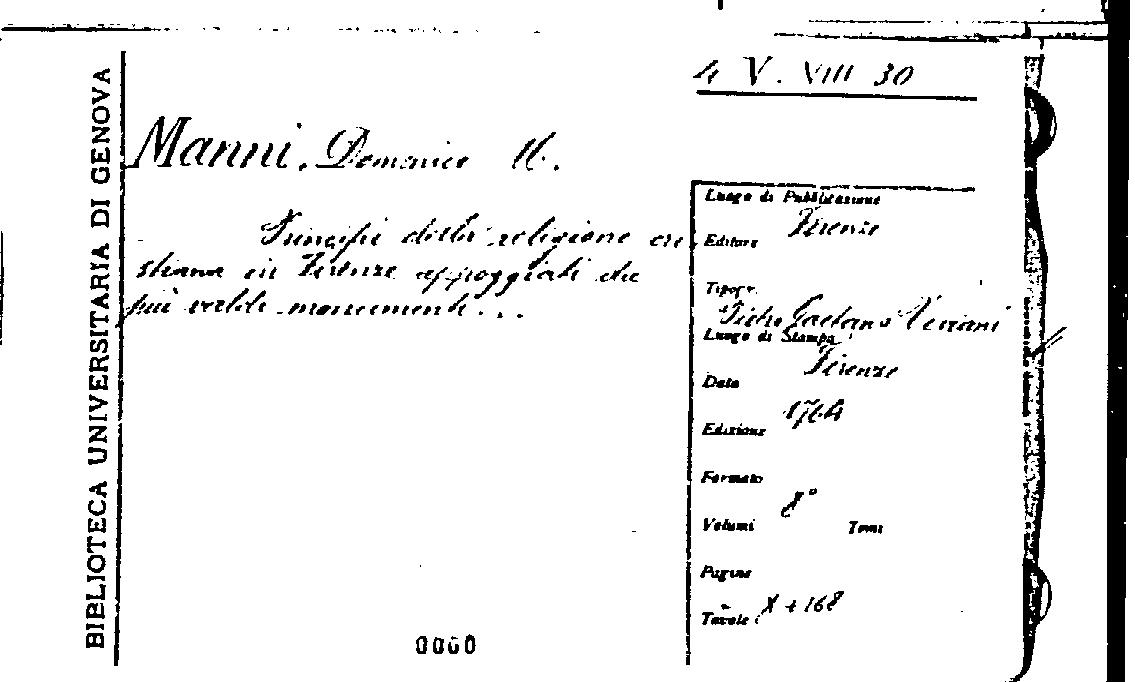 BIBLIOTECA UNIVERSITARIA DI GENOVA
4 V. VIII 30
Manni, Domenico M.
Principi della religione cri
stiana in Firenze appoggiati da
più validi monumenti...
Luogo di Pubblicazione
Firenze
Editore
Tipogr.
Pietro Gaetano Viviani
Luogo di Stampa
Firenze
Data
1764
Edizione
Formato
8°
Volumi Tomi
Pagine
X + 168
Tavole
0000